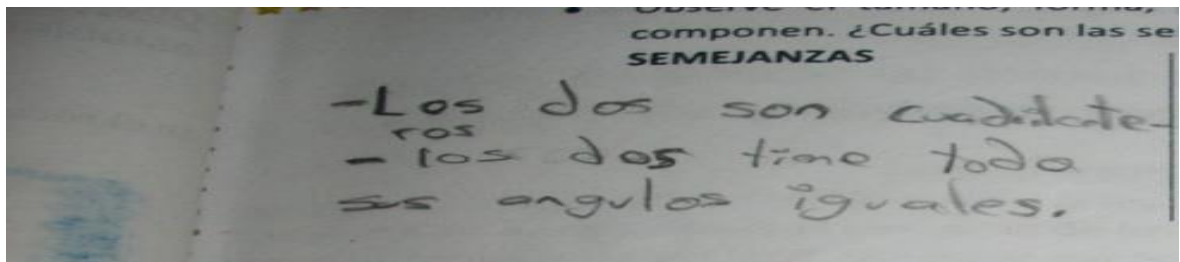 componen. ¿Cuáles son las se
SEMEJANZAS
-Los dos son cuadilate-
ros
- los dos tiene toda
sus angulos iguales.